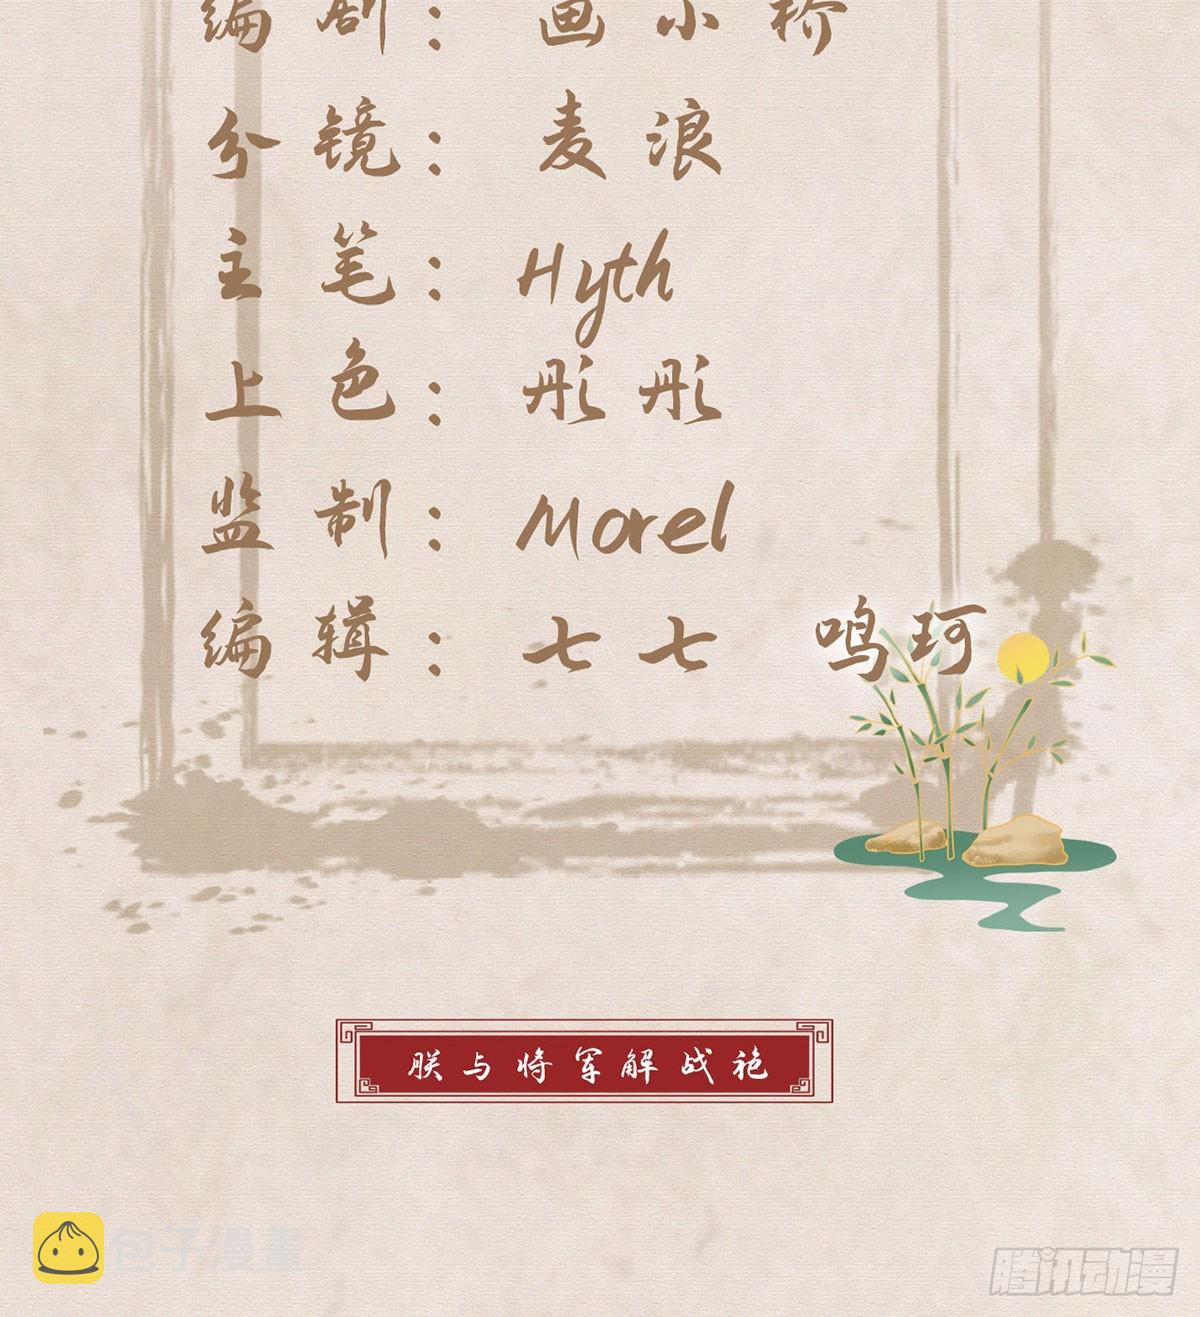 编剧： 画小桥
分镜： 麦浪
主笔： Hyth
上色： 彤彤
监制： Morel
编辑： 七七 鸣珂
朕与将军解战袍
包子漫畫
腾讯动漫